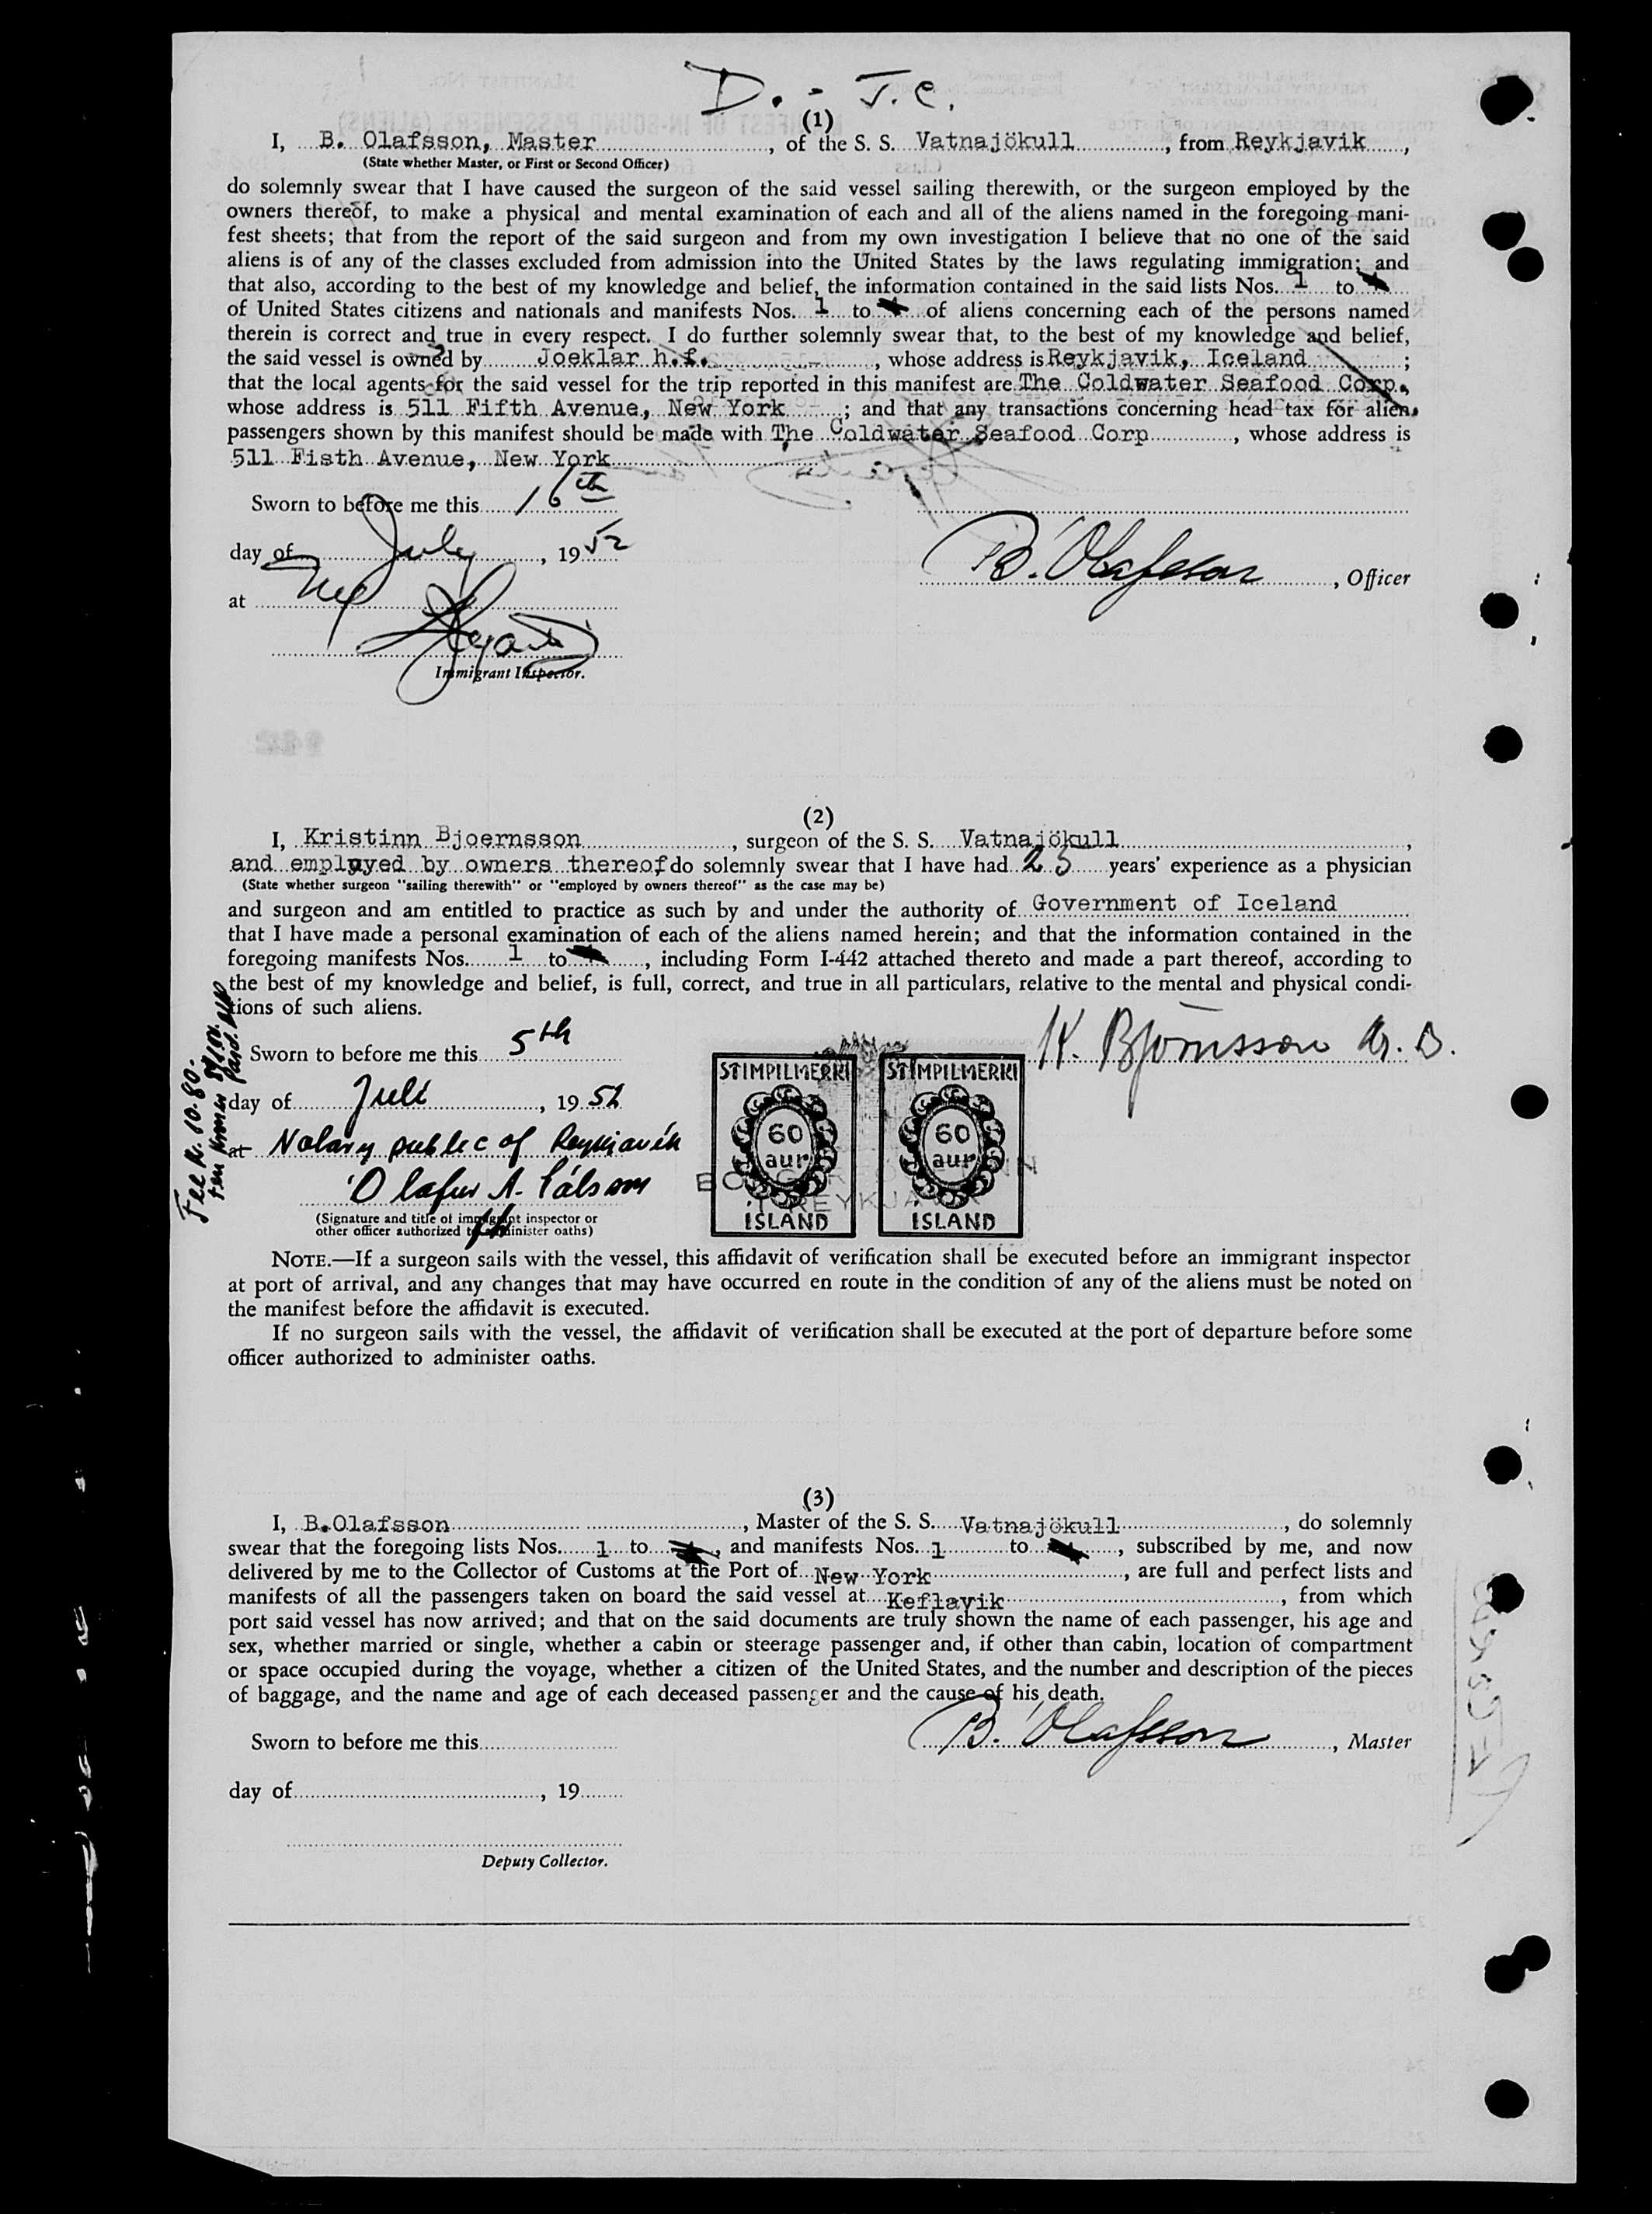 D. - J.C.
(1)
I, B. Olafsson, Master, of the S. S. Vatnajökull, from Reykjavik,
(State whether Master, or First or Second Officer)
do solemnly swear that I have caused the surgeon of the said vessel sailing therewith, or the surgeon employed by the
owners thereof, to make a physical and mental examination of each and all of the aliens named in the foregoing mani-
fest sheets; that from the report of the said surgeon and from my own investigation I believe that no one of the said
aliens is of any of the classes excluded from admission into the United States by the laws regulating immigration; and
that also, according to the best of my knowledge and belief, the information contained in the said lists Nos. 1 to
of United States citizens and nationals and manifests Nos. 1 to of aliens concerning each of the persons named
therein is correct and true in every respect. I do further solemnly swear that, to the best of my knowledge and belief,
the said vessel is owned by Joeklar h.f., whose address is Reykjavik, Iceland;
that the local agents for the said vessel for the trip reported in this manifest are The Coldwater Seafood Corp.,
whose address is 511 Fifth Avenue, New York; and that any transactions concerning head tax for alien
passengers shown by this manifest should be made with The Coldwater Seafood Corp, whose address is
511 Fisth Avenue, New York
Sworn to before me this 16th
day of July, 1952
B. Olafsson, Officer
at
Immigrant Inspector.
(2)
I, Kristinn Bjoernsson, surgeon of the S. S. Vatnajökull,
and employed by owners thereof do solemnly swear that I have had 25 years' experience as a physician
(State whether surgeon "sailing therewith" or "employed by owners thereof" as the case may be)
and surgeon and am entitled to practice as such by and under the authority of Government of Iceland
that I have made a personal examination of each of the aliens named herein; and that the information contained in the
foregoing manifests Nos. 1 to, including Form I-442 attached thereto and made a part thereof, according to
the best of my knowledge and belief, is full, correct, and true in all particulars, relative to the mental and physical condi-
tions of such aliens.
K. Björnsson
Sworn to before me this 5th
day of Juli, 1952
at Notary public of Reykjavik
Ólafur A. Pálsson
(Signature and title of immigrant inspector or
other officer authorized to administer oaths)
Fee Kr. 10.80.
STIMPILMERKI
60
aur
ISLAND
STIMPILMERKI
60
aur
ISLAND
NOTE.—If a surgeon sails with the vessel, this affidavit of verification shall be executed before an immigrant inspector
at port of arrival, and any changes that may have occurred en route in the condition of any of the aliens must be noted on
the manifest before the affidavit is executed.
If no surgeon sails with the vessel, the affidavit of verification shall be executed at the port of departure before some
officer authorized to administer oaths.
(3)
I, B.Olafsson, Master of the S. S. Vatnajökull, do solemnly
swear that the foregoing lists Nos. 1 to, and manifests Nos. 1 to, subscribed by me, and now
delivered by me to the Collector of Customs at the Port of New York, are full and perfect lists and
manifests of all the passengers taken on board the said vessel at Keflavik, from which
port said vessel has now arrived; and that on the said documents are truly shown the name of each passenger, his age and
sex, whether married or single, whether a cabin or steerage passenger and, if other than cabin, location of compartment
or space occupied during the voyage, whether a citizen of the United States, and the number and description of the pieces
of baggage, and the name and age of each deceased passenger and the cause of his death.
B. Olafsson, Master
Sworn to before me this
day of, 19
Deputy Collector.